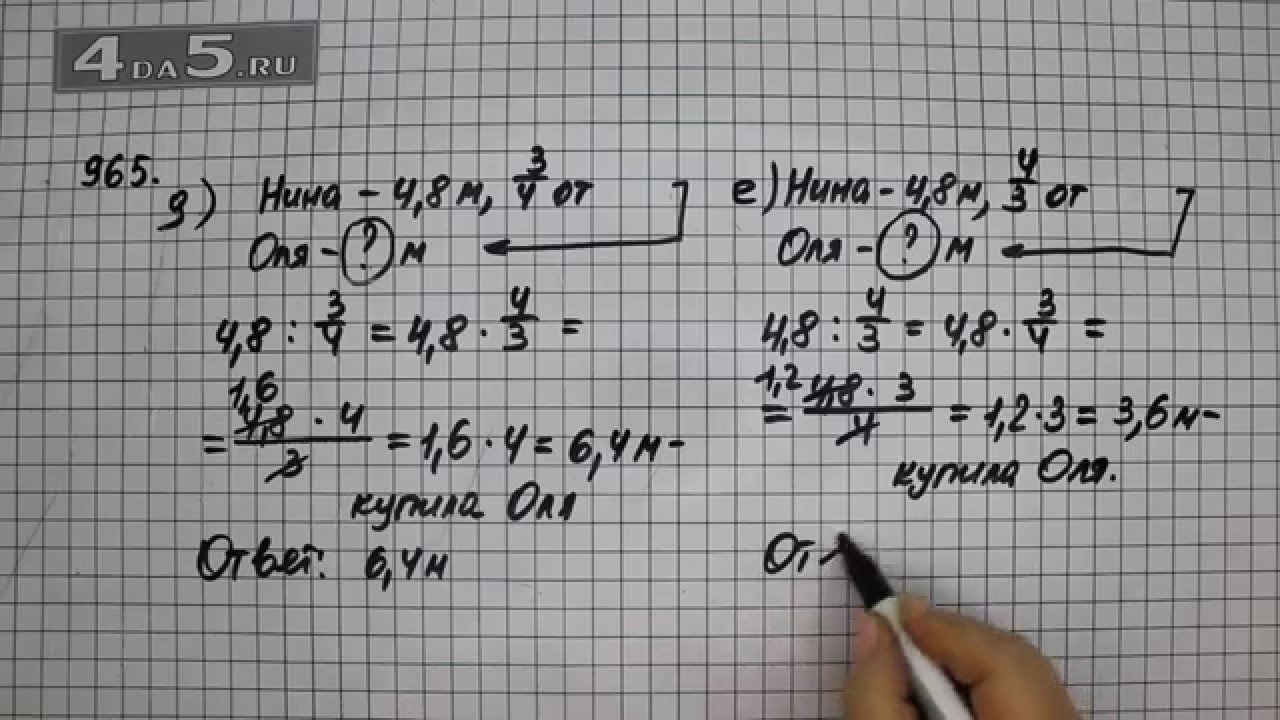 4DA5.RU
965.
д) Нина - 4,8 м, 3/4 от
Оля - ? м
4,8 : 3/4 = 4,8 · 4/3 =
1,6
= 4,8 · 4 / 3 = 1,6 · 4 = 6,4 м -
купила Оля
Ответ: 6,4 м
е) Нина - 4,8 м, 4/3 от
Оля - ? м
4,8 : 4/3 = 4,8 · 3/4 =
1,2
= 4,8 · 3 / 4 = 1,2 · 3 = 3,6 м -
купила Оля.
От